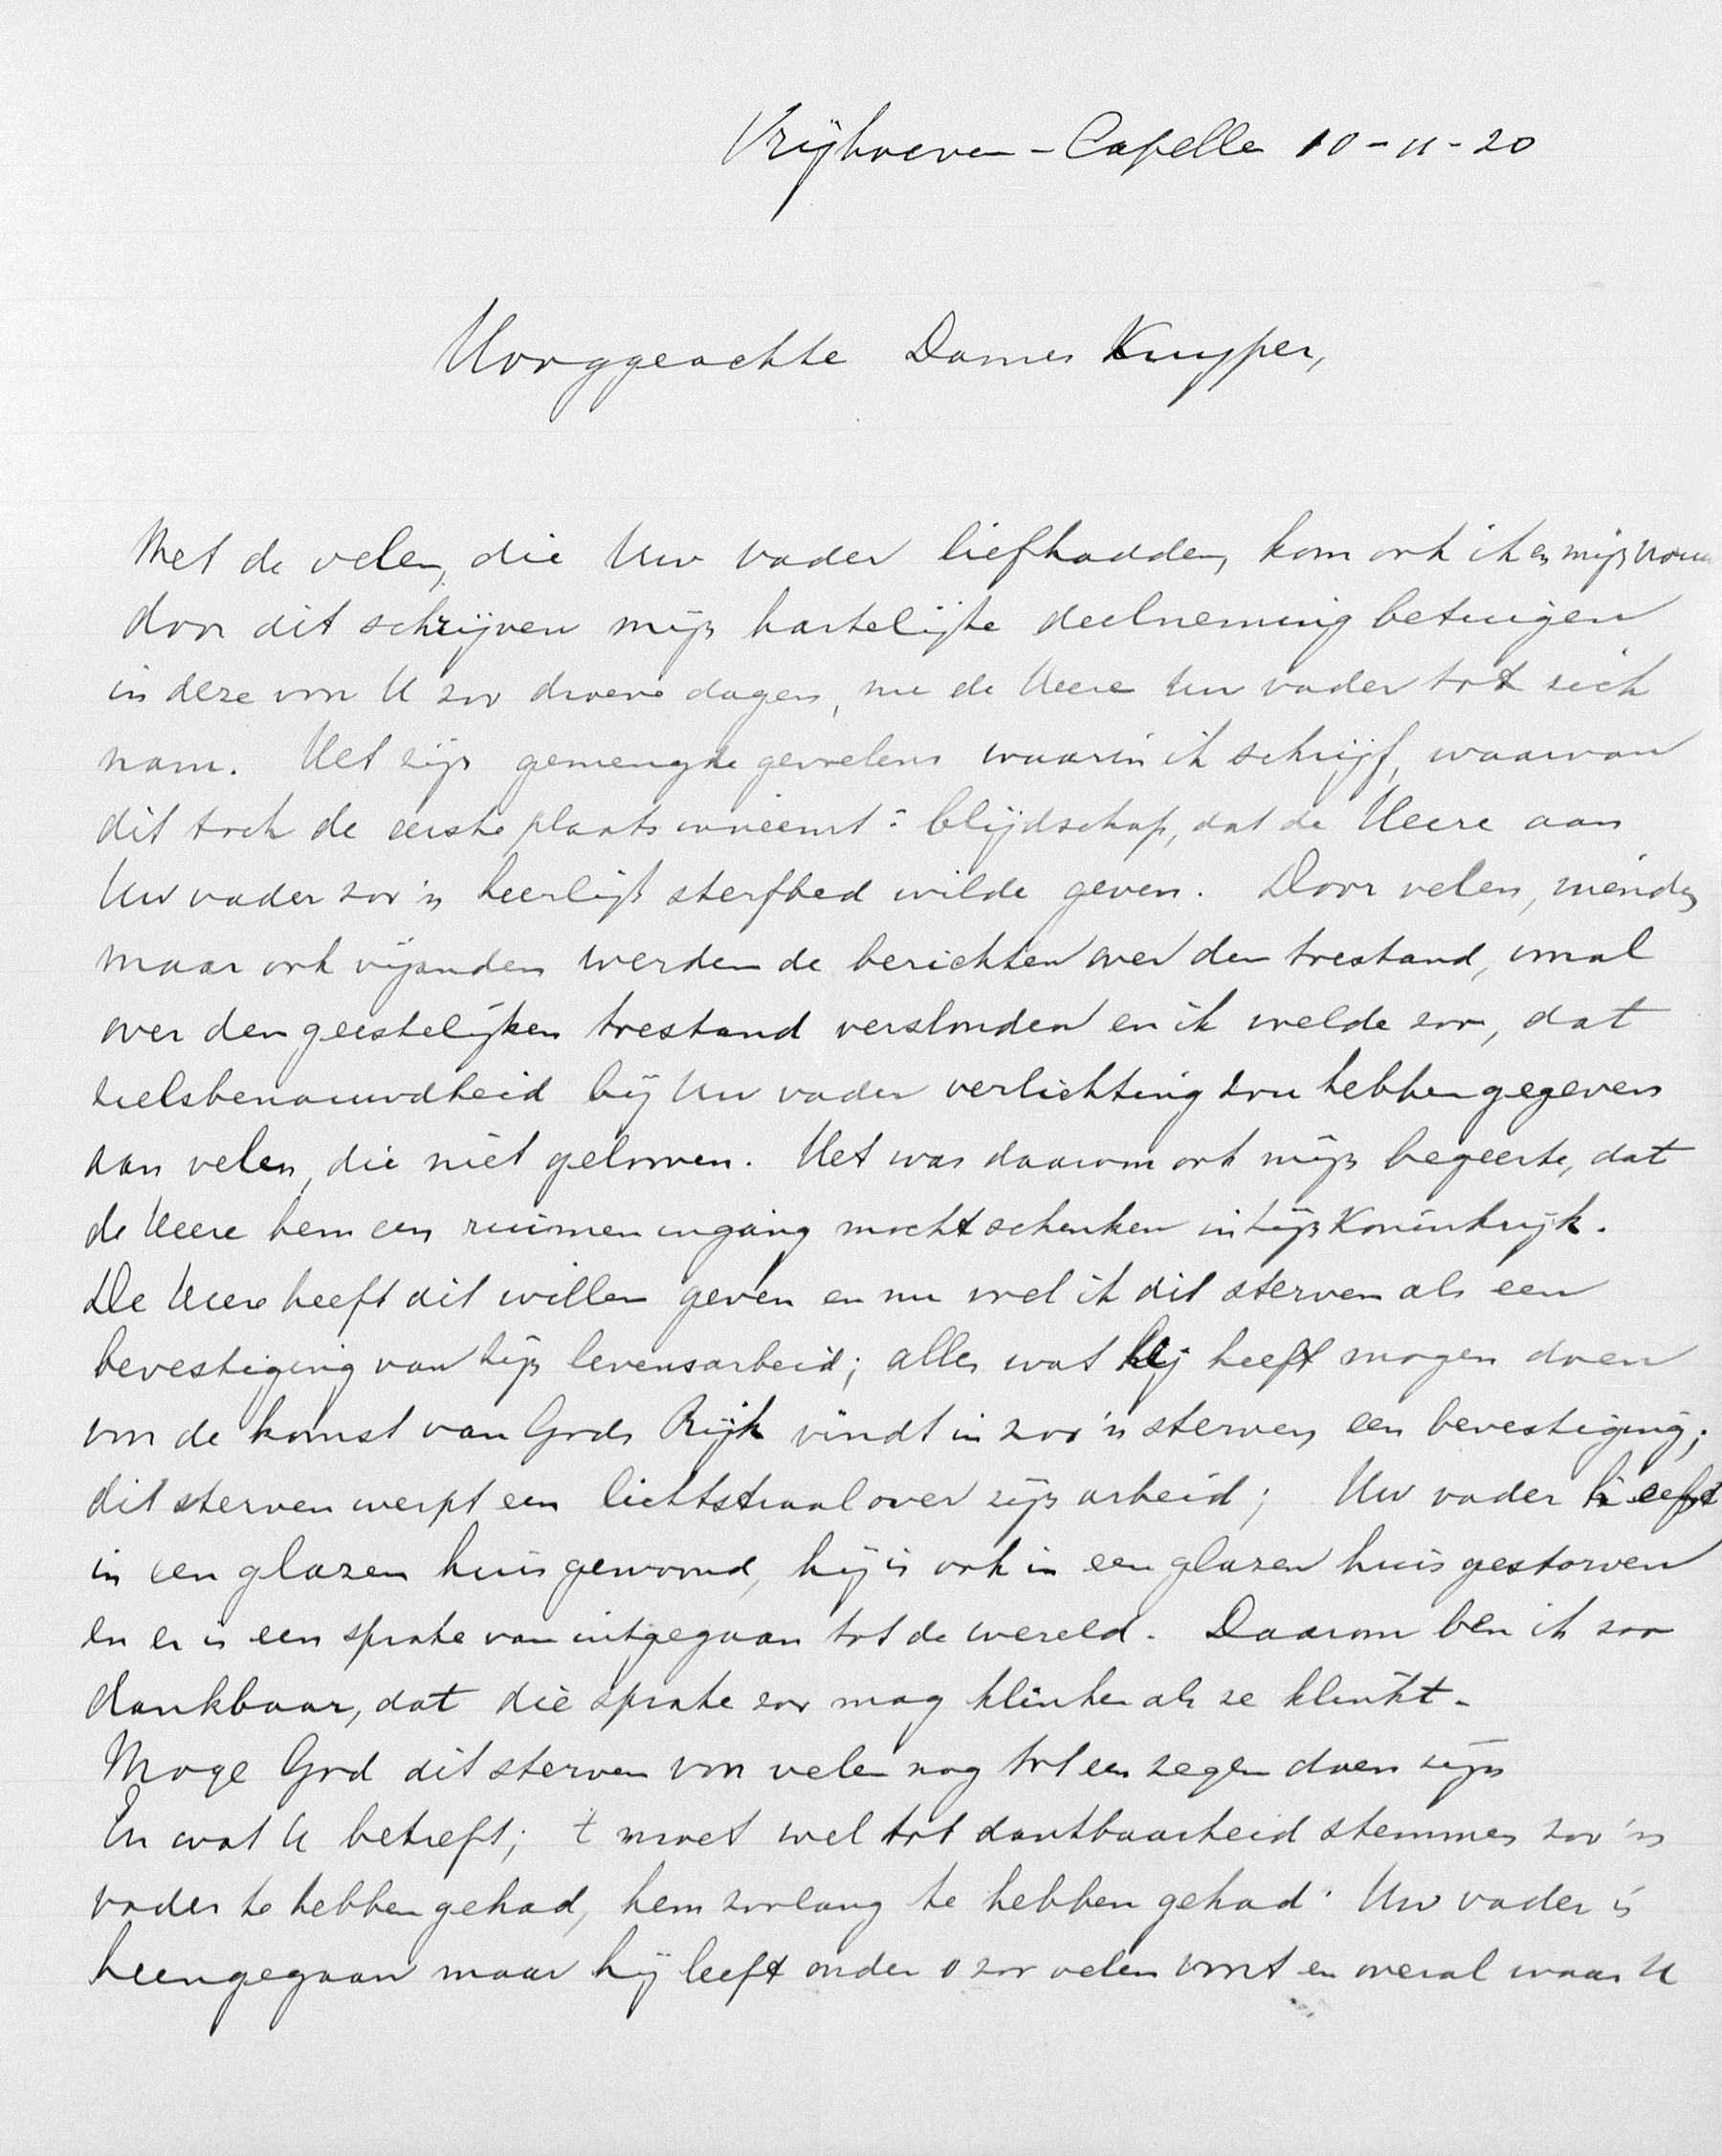 Vrijhoeven-Capelle 10-11-20
Hooggeachte Dames Kuyper,
Met de velen, die Uw vader liefhadden, kom ook ik en mijn vrouw
door dit schrijven mijn hartelijke deelneming betuigen
in deze voor U zoo droeve dagen, nu de Heere Uw vader tot zich
nam. Het zijn gemengde gevoelens waarin ik schrijf, waarvan
dit toch de eerste plaats inneemt: blijdschap, dat de Heere aan
Uw vader zoo'n heerlijk sterfbed wilde geven. Door velen, vrienden
maar ook vijanden werden de berichten over den toestand, vooral
over den geestelijken toestand verslonden en ik voelde zoo, dat
zielsbenauwdheid bij Uw vader verlichting zou hebben gegeven
aan velen, die niet gelooven. Het was daarom ook mijn begeerte, dat
de Heere hem een ruimen ingang mocht schenken in Zijn Koninkrijk.
De Heere heeft dit willen geven en nu voel ik dit sterven als een
bevestiging van zijn levensarbeid; alles wat hij heeft mogen doen
voor de komst van Gods Rijk vindt in zoo'n sterven een bevestiging;
dit sterven werpt een lichtstraal over zijn arbeid; Uw vader heeft
in een glazen huis gewoond, hij is ook in een glazen huis gestorven
en er is een sprake van uitgegaan tot de wereld. Daarom ben ik zoo
dankbaar, dat die sprake zoo mag klinken als ze klinkt.
Moge God dit sterven voor velen nog tot een zegen doen zijn
En wat U betreft; 't moet wel tot dankbaarheid stemmen zoo'n
vader te hebben gehad, hem zoolang te hebben gehad. Uw vader is
heengegaan maar hij leeft onder o zoo velen voort en overal waar U